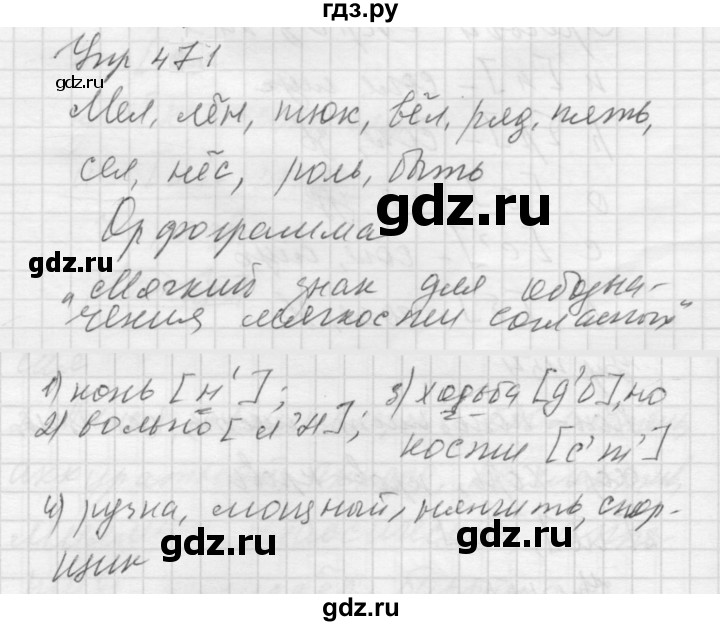 гдз.ру
Упр 471
Мел, лён, тюк, вёл, ряд, пять,
сел, нёс, роль, быть
gdz.ru
Орфограмма
gdz.ru
„Мягкий знак для обозна-
чения мягкости согласных"
1) конь [н']; 3) ходьба [д'б], но
2) вольно [л'н]; кости [с'т']
gdz.ru
4) ручка, мощный, нянчить, спор-
gdz.ru
щик
gdz.ru
gdz.ru